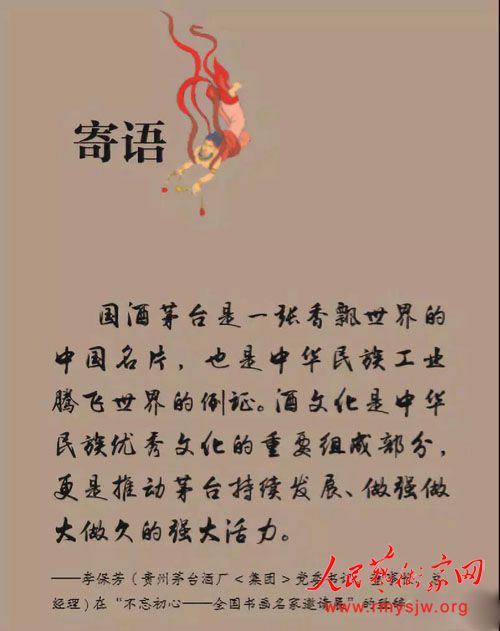 寄语
国酒茅台是一张香飘世界的
中国名片，也是中华民族工业
腾飞世界的例证。酒文化是中华
民族优秀文化的重要组成部分，
更是推动茅台持续发展、做强做
大做久的强大活力。
——李保芳（贵州茅台酒厂<集团>党委书记、
经理）在“不忘初心——全国书画名家邀请展”的
人民艺术家网
www.rmysjw.org